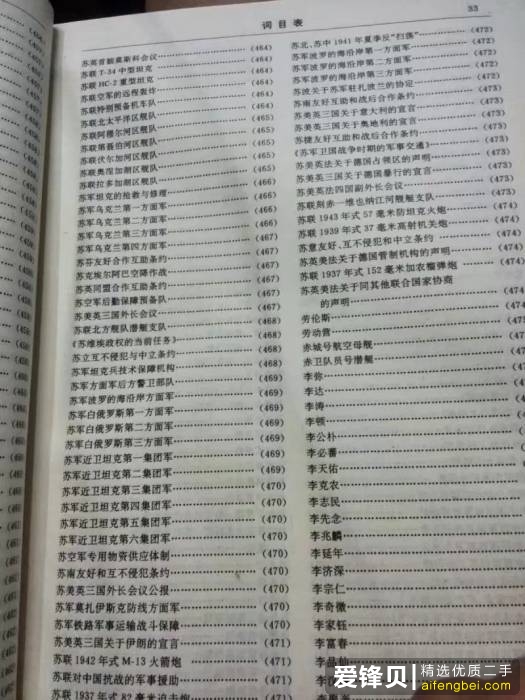 词目表
33
苏英首脑莫斯科会议 (464)
苏联T-34中型坦克 (464)
苏联HC-2重型坦克 (464)
苏联空军的远程轰炸 (464)
苏联特别预备机车队 (464)
苏联北太平洋区舰队 (465)
苏联阿穆尔河区舰队 (465)
苏联第聂伯河区舰队 (465)
苏联伏尔加河区舰队 (465)
苏联奥涅加湖区舰队 (465)
苏联拉多加湖区舰队 (465)
苏军坦克的抢救与修理 (466)
苏军乌克兰第一方面军 (466)
苏军乌克兰第二方面军 (466)
苏军乌克兰第三方面军 (466)
苏军乌克兰第四方面军 (467)
苏芬友好合作互助条约 (467)
苏克埃尔阿巴空降作战 (467)
苏英同盟合作互助条约 (467)
苏空军后勤保障预备队 (467)
苏美英三国外长会议 (468)
苏联北方舰队潜艇支队 (468)
《苏维埃政权的当前任务》 (468)
苏立互不侵犯与中立条约 (468)
苏军坦克兵技术保障机构 (468)
苏军方面军后方警卫部队 (469)
苏军波罗的海沿岸方面军 (469)
苏军白俄罗斯第一方面军 (469)
苏军白俄罗斯第二方面军 (469)
苏军白俄罗斯第三方面军 (469)
苏军近卫坦克第一集团军 (469)
苏军近卫坦克第二集团军 (469)
苏军近卫坦克第三集团军 (470)
苏军近卫坦克第四集团军 (470)
苏军近卫坦克第五集团军 (470)
苏军近卫坦克第六集团军 (470)
苏空军专用物资供应体制 (470)
苏南友好和互不侵犯条约 (470)
苏美英三国外长会议公报 (470)
苏军莫扎伊斯克防线方面军 (470)
苏军铁路军事运输战斗保障 (470)
苏美英三国关于伊朗的宣言
苏联1942年式M-13火箭炮
苏联对中国抗战的军事援助
苏联1937年式82毫米迫击炮
苏北、苏中1941年夏季反“扫荡” (472)
苏军波罗的海沿岸第一方面军 (472)
苏军波罗的海沿岸第二方面军 (472)
苏军波罗的海沿岸第三方面军 (472)
苏波关于苏军驻扎波兰的协定 (472)
苏南友好互助和战后合作条约 (473)
苏美英三国关于意大利的宣言 (473)
苏美英三国关于奥地利的宣言 (473)
苏捷友好互助和战后合作条约 (473)
《苏军卫国战争时期的军事交通》 (473)
苏美英法关于德国占领区的声明 (473)
苏美英三国关于德国暴行的宣言 (473)
苏美英法四国副外长会议
苏联刻赤—维也纳江河舰艇支队
苏联1943年式57毫米防坦克火炮
苏联1939年式37毫米高射机关炮
苏意友好、互不侵犯和中立条约
苏美英法关于德国管制机构的声明
苏联1937年式152毫米加农榴弹炮
苏英美法关于同其他联合国家协商
的声明
劳伦斯
劳动营
赤城号航空母舰
赤卫队员号潜艇
李弥
李达
李涛
李顿
李公朴
李必蕃
李天佑
李克农
李志民
李先念
李兆麟
李延年
李济深
李宗仁
李奇微
李家钰
李富春
李品仙
爱锋贝
精选优质二手
www.aifengbei.com